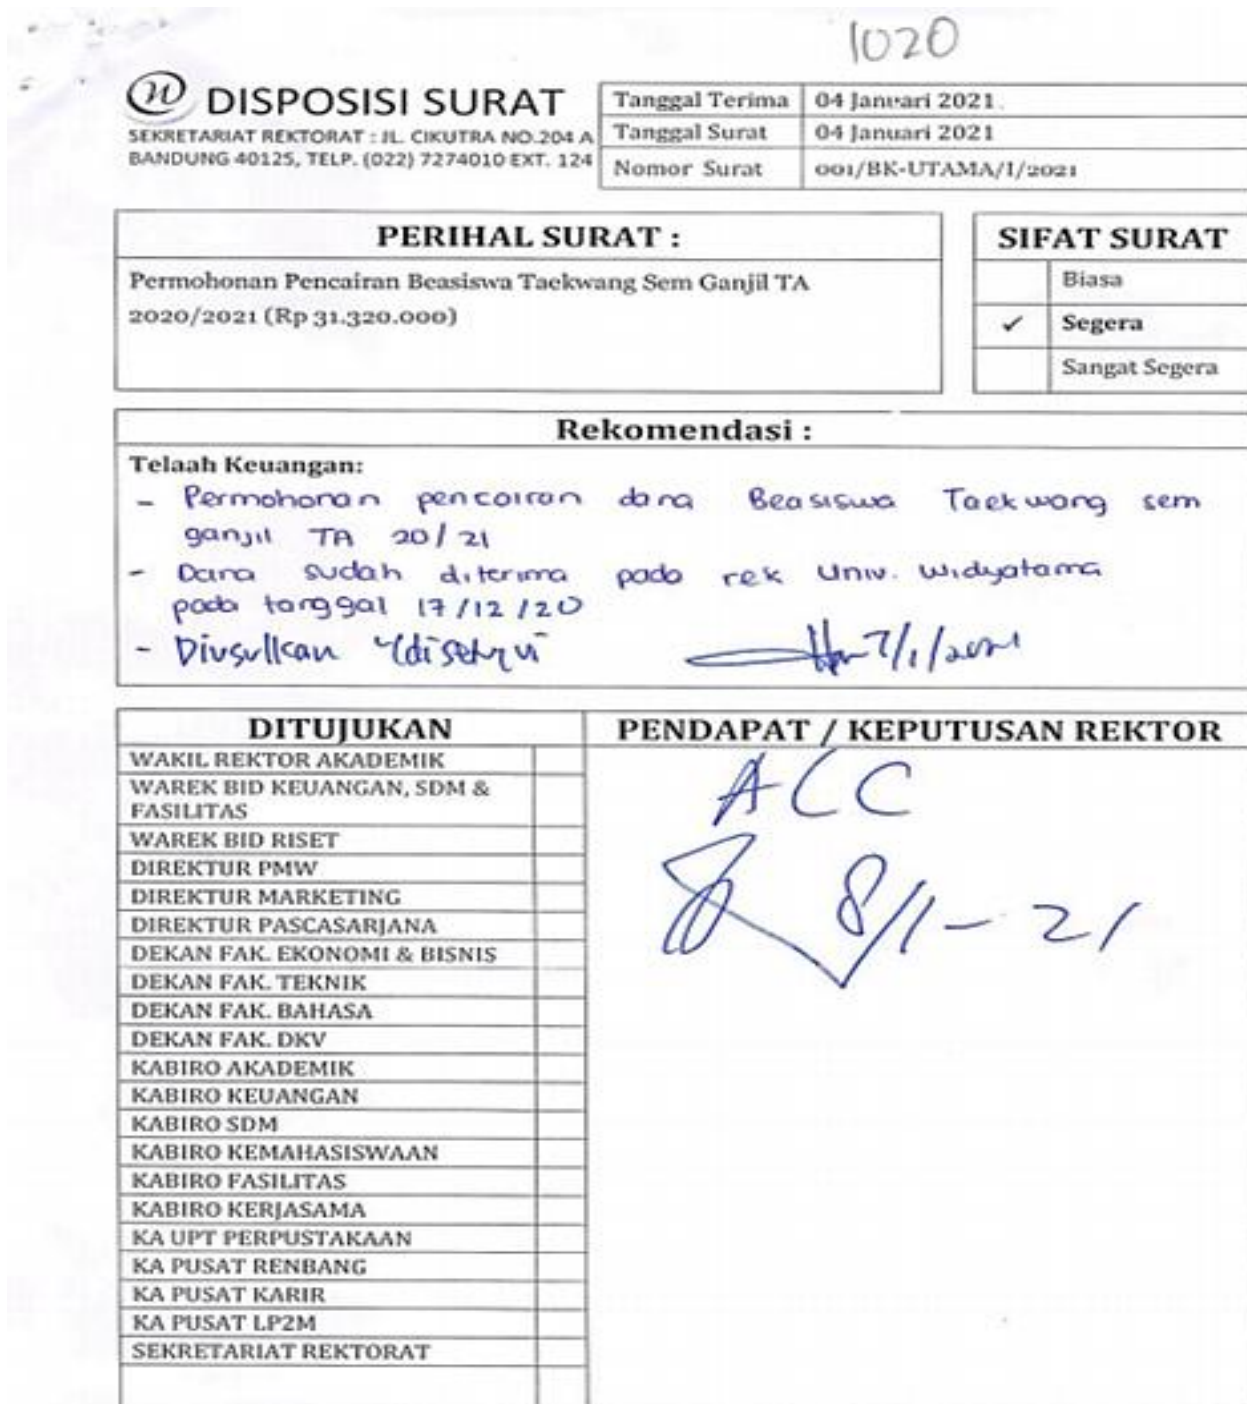 1020
DISPOSISI SURAT
SEKRETARIAT REKTORAT : JL. CIKUTRA NO.204 A
BANDUNG 40125, TELP. (022) 7274010 EXT. 124
Tanggal Terima 04 Januari 2021
Tanggal Surat 04 Januari 2021
Nomor Surat 001/BK-UTAMA/I/2021
PERIHAL SURAT :
Permohonan Pencairan Beasiswa Taekwang Sem Ganjil TA
2020/2021 (Rp 31.320.000)
SIFAT SURAT
Biasa
✓ Segera
Sangat Segera
Rekomendasi :
Telaah Keuangan:
- Permohonan pencairan dana Beasiswa Taekwang sem
ganjil TA 20/21
- Dana sudah diterima pada rek Univ. Widyatama
pada tanggal 17/12/20
- Diusulkan disetujui 7/1/2021
DITUJUKAN
WAKIL REKTOR AKADEMIK
WAREK BID KEUANGAN, SDM &
FASILITAS
WAREK BID RISET
DIREKTUR PMW
DIREKTUR MARKETING
DIREKTUR PASCASARJANA
DEKAN FAK. EKONOMI & BISNIS
DEKAN FAK. TEKNIK
DEKAN FAK. BAHASA
DEKAN FAK. DKV
KABIRO AKADEMIK
KABIRO KEUANGAN
KABIRO SDM
KABIRO KEMAHASISWAAN
KABIRO FASILITAS
KABIRO KERJASAMA
KA UPT PERPUSTAKAAN
KA PUSAT RENBANG
KA PUSAT KARIR
KA PUSAT LP2M
SEKRETARIAT REKTORAT
PENDAPAT / KEPUTUSAN REKTOR
ACC
8/1-21